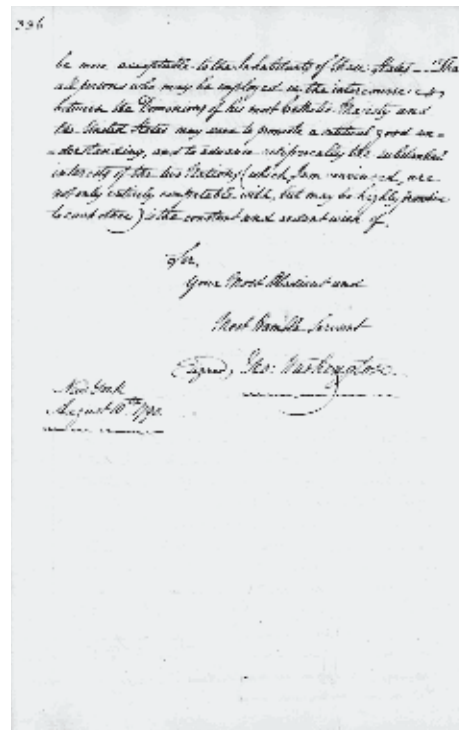 336
be more acceptable to the Inhabitants of these States — That
all persons who may be employed in the intercourse
between the Dominions of his most Catholic Majesty and
the United States may serve to promote a mutual good un-
-derstanding, and to advance reciprocally the substantial
interests of the two Nations (which, I am convinced, are
not only entirely compatible with, but may be highly
to each other) is the constant and ardent wish of,
Sir,
Your Most Obedient and
Most Humble Servant
(Signed) Geo: Washington.
New York
August 10th 1790.